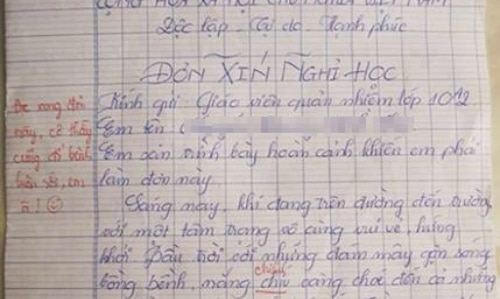 CỘNG HÒA XÃ HỘI CHỦ NGHĨA VIỆT NAM
Độc lập - Tự do - Hạnh phúc
ĐƠN XIN NGHỈ HỌC
Kính gửi: Giáo viên quản nhiệm lớp 10A2
Em tên
Em xin trình bày hoàn cảnh khiến em phải
làm đơn này.
Sáng nay, khi đang trên đường đến trường
với một tâm trạng vô cùng vui vẻ, hứng
khởi. Bầu trời với những đám mây gợn sóng
bồng bềnh, mắng chịu càng chơi đến cả những
chịu
Đọc xong đơn
này, cô thấy
cũng đổ bệnh
luôn rồi, em
ạ! ☺